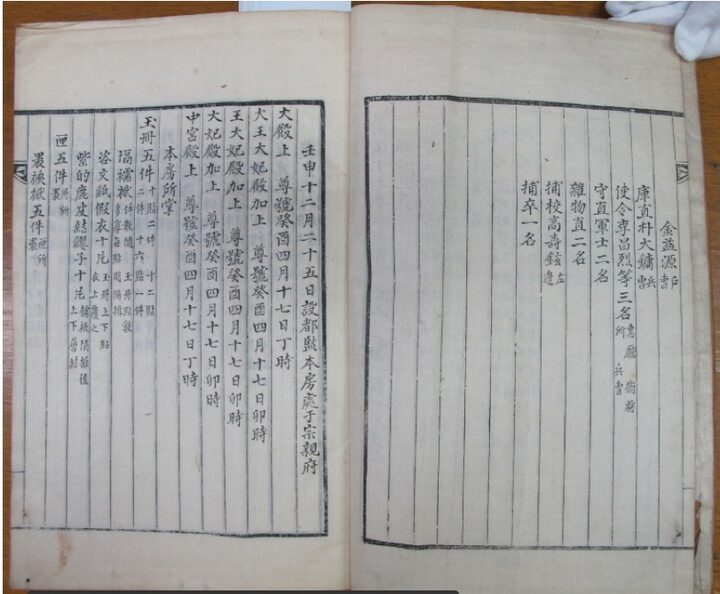 金益源 戶曹
庫直朴大鏞 兵曹
使令李昌烈等三名
守直軍士二名
雜物直二名
捕校高壽鉉 左邊
捕卒一名
壬申十二月二十五日設都監本房處于宗親府
大殿上 尊號癸酉四月十七日丁時
大王大妃殿加上 尊號癸酉四月十七日卯時
王大妃殿加上 尊號癸酉四月十七日卯時
大妃殿加上 尊號癸酉四月十七日卯時
中宮殿上 尊號癸酉四月十七日丁時
本房所掌
玉冊五件 十點二件 十二點二件 十六點一件
隔襦袱
紫的鹿皮結纓子十尾
匣五件
裹袱袱五件